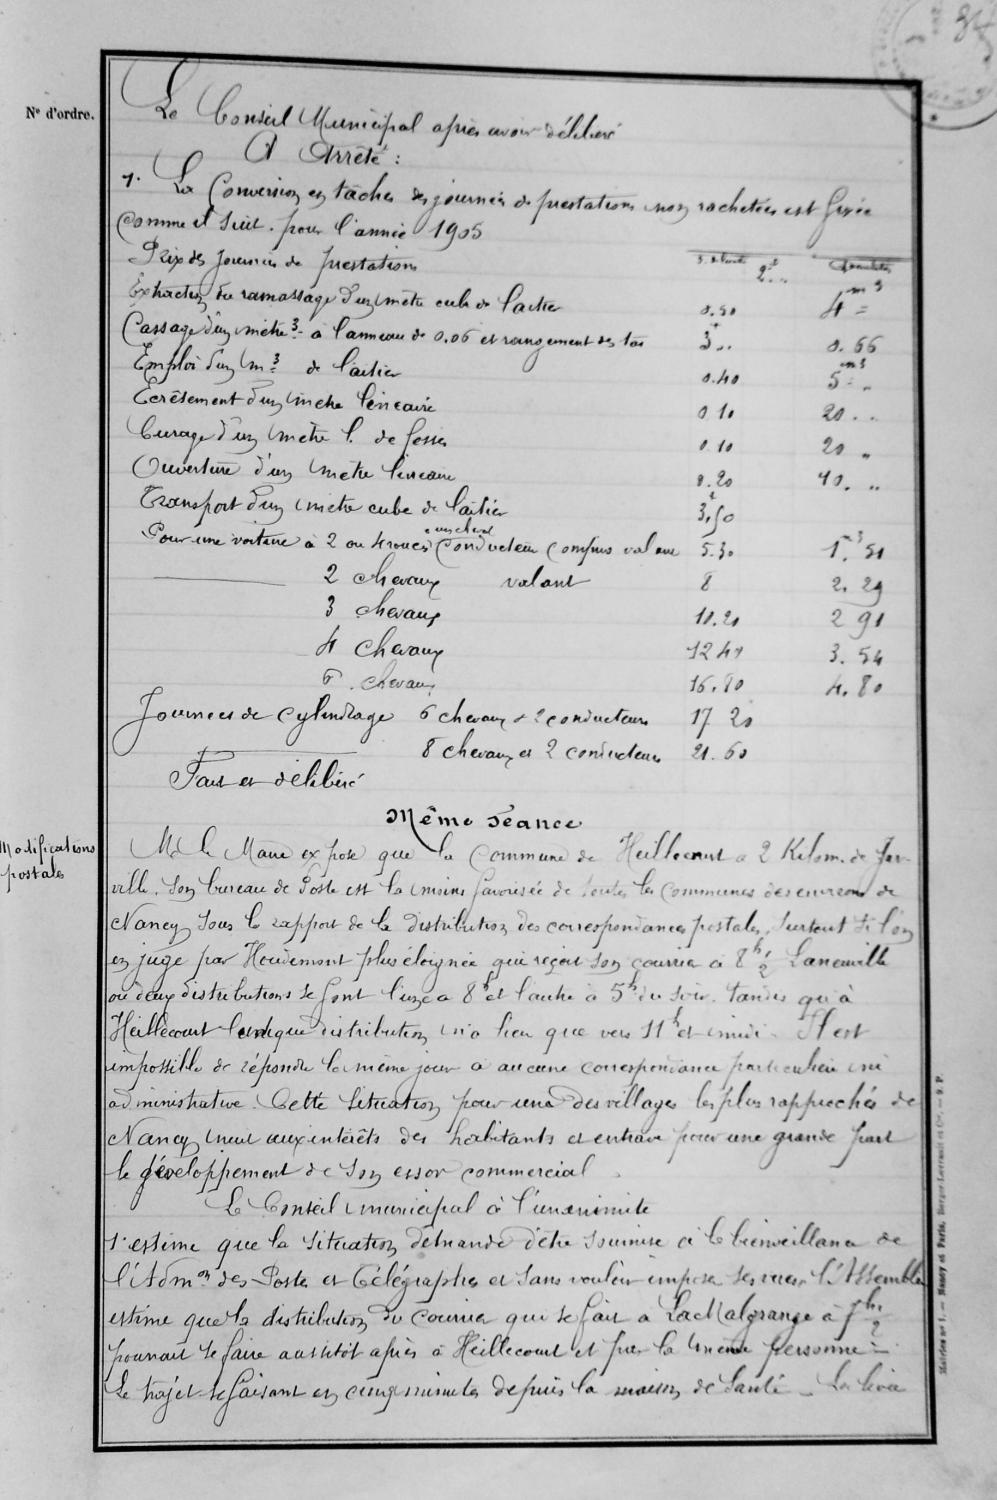 84
N° d'ordre.
Le Conseil Municipal après avoir délibéré
A Arrêté :
1. La Conversion en tâches des journées de prestations non rachetées est fixée
comme il suit. pour l'année 1905
Prix des journées de prestations 2 "
Extraction ou ramassage d'un mètre cube de laitier 0.50 4 m3 =
Cassage d'un mètre 3 à l'anneau de 0.06 et rangement des tas 3 " 0.66
Emploi d'un m3 de laitier 0.40 5 m3 "
Ecrêtement d'un mètre linéaire 0.10 20 "
Curage d'un mètre l. de fossés 0.10 20 "
Ouverture d'un mètre linéaire 0.20 10. "
Transport d'un mètre cube de laitier 3f,50
Pour une voiture à 2 ou 4 roues à un cheval Conducteur compris valant 5.30 1.m3 51
2 chevaux valant 8 2. 29
3 chevaux 10.20 2 91
4 Chevaux 12 40 3. 54
6. chevaux 16.80 4.80
Journées de Cylindrage 6 chevaux & 2 conducteurs 17 20
8 chevaux et 2 conducteurs 21.60
Fait et délibéré
Même Séance
Modifications
postales
Mr le Maire expose que la Commune de Heillecourt à 2 Kilom. de Jar-
ville. Son bureau de Poste est la moins favorisée de toutes les communes des environs de
Nancy sous le rapport de la distribution des correspondances postales, surtout si l'on
en juge par Houdemont plus éloignée qui reçoit son courrier à 8h 1/2 Laneuville
où deux distributions se font l'une à 8h et l'autre à 5h du soir. tandis qu'à
Heillecourt l'unique distribution n'a lieu que vers 11h et midi. Il est
impossible de répondre le même jour à aucune correspondance particulière ni
administrative. Cette situation pour un des villages les plus rapprochés de
Nancy nuit aux intérêts des habitants et entrave pour une grande part
le développement de son essor commercial.
Le Conseil municipal à l'unanimité
1° estime que la situation demande d'être soumise à la bienveillance de
l'Admon des Postes et Télégraphes et sans vouloir imposer ses vues, l'Assemblée
estime que la distribution du courrier qui se fait à La Malgrange à 7h 1/2
pourrait se faire aussitôt après à Heillecourt et par la même personne =
Le trajet se faisant en cinq minutes depuis la maison de Santé - La levée
Mairies n° 1. — Nancy et Paris, Berger-Levrault et Cie. — 9. P.